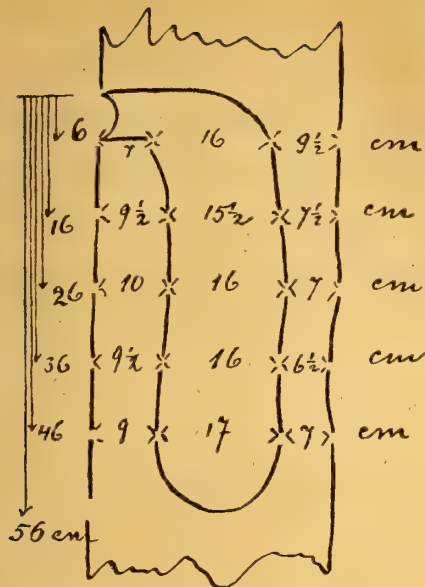 6 7 16 9½ cm
16 9½ 15½ 7½ cm
26 10 16 7 cm
36 9½ 16 6½ cm
46 9 17 7 cm
56 cm